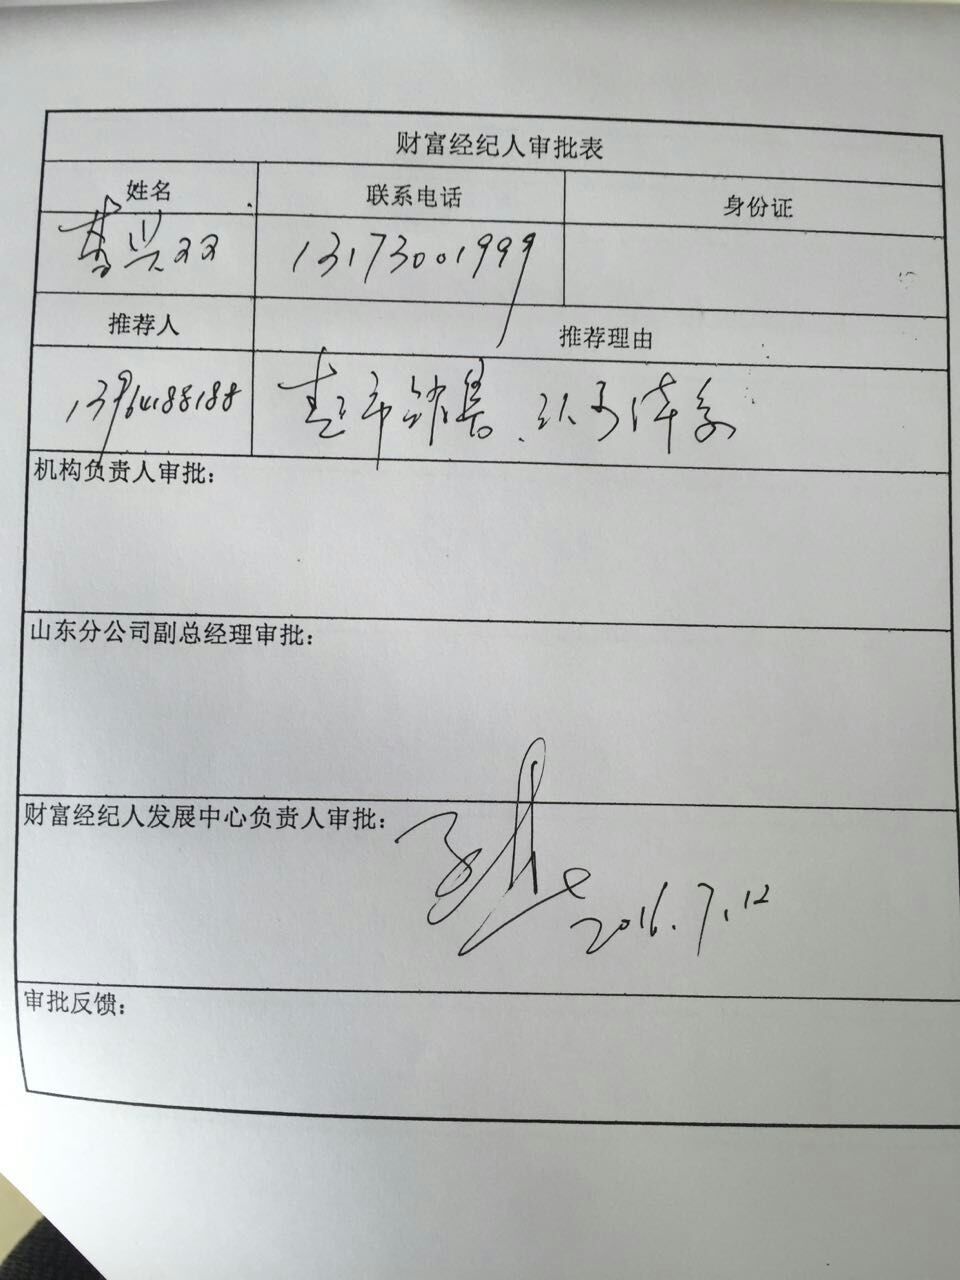 财富经纪人审批表
姓名 联系电话 身份证
曹兴双 13173001999
推荐人 推荐理由
13964188188 直市销售、认可泽家
机构负责人审批：
山东分公司副总经理审批：
财富经纪人发展中心负责人审批：
2016.7.12
审批反馈：